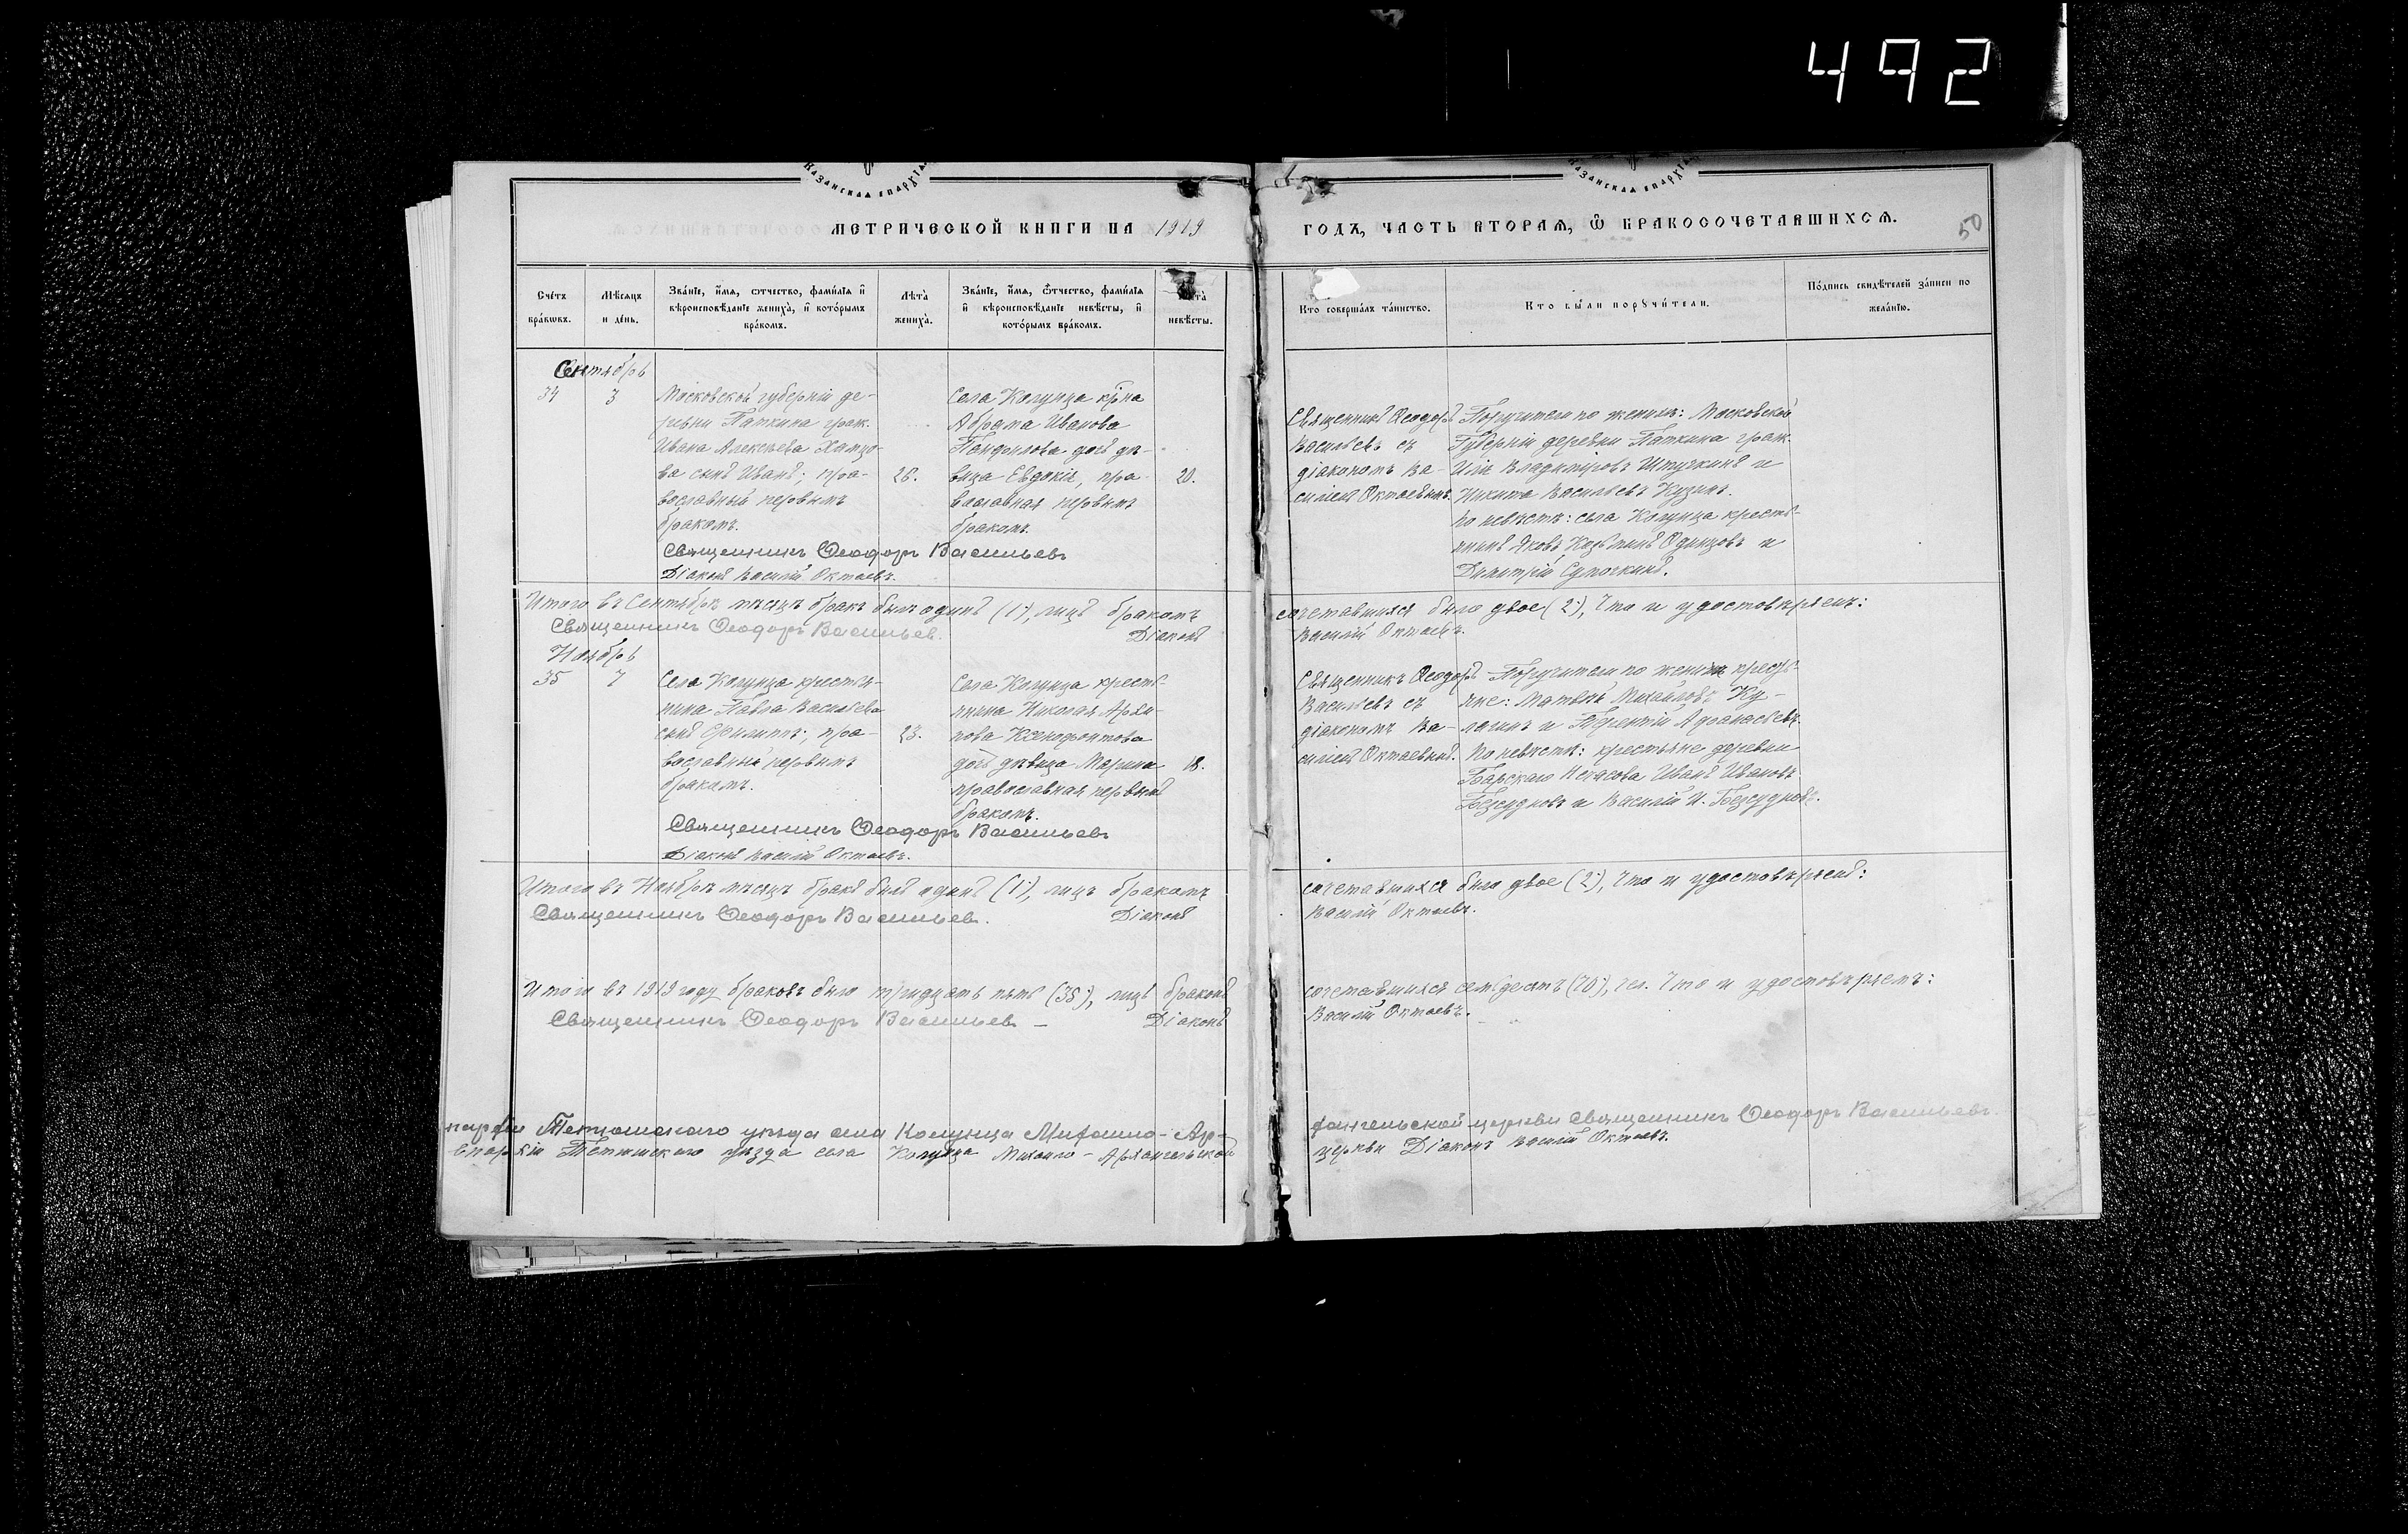 492
Казанская епархїа
Казанская епархїа
МЕТРИЧЕСКОЙ КНИГИ НА 1919
ГОДЪ, ЧАСТЬ ВТОРАЯ, Ѿ БРАКОСОЧЕТАВШИХСЯ.
50
Счетъ браковъ.
Мѣсяцъ и день.
Званіе, имя, отчество, фамилія и вѣроисповѣданіе жениха, и которымъ бракомъ.
Лѣта жениха.
Званіе, имя, отчество, фамилія и вѣроисповѣданіе невѣсты, и которымъ бракомъ.
Лѣта невѣсты.
Кто совершалъ таинство.
Кто были поручители.
Подпись свидѣтелей записи по желанію.
Сентябрь
34
3
Московской губерніи де-
ревни Паткина граж.
Ивана Алексѣева Хамцо-
ва сынъ Иванъ; пра-
вославный первымъ
бракомъ.
26.
Села Колунца кр-на
Абрама Иванова
Панфилова дочь дѣ-
вица Евдокія, пра-
вославная первымъ
бракомъ.
20.
Священникъ Ѳеодоръ
Васильевъ съ
діакономъ Ва-
силіем Октаевымъ.
Поручители по женихѣ: Московской
Губерніи деревни Паткина граж.
Илія Владиміровъ Штучкинъ и
Никита Васильевъ Кузинъ.
По невѣстѣ: села Колунца кресть-
янинъ Яковъ Козьминъ Одинцовъ и
Димитрій Сумочкинъ.
Священникъ Ѳеодоръ Васильевъ
Діаконъ Василій Октаевъ.
Итого въ Сентябрѣ мѣсяцѣ бракъ былъ одинъ (1), лицъ бракомъ
сочетавшихся было двое (2), что и удостовѣряемъ:
Священникъ Ѳеодоръ Васильевъ. Діаконъ
Василій Октаевъ.
Ноябрь
35
7
Села Колунца крестья-
нина Павла Васильева
сынъ Филиппъ; пра-
вославный первымъ
бракомъ.
23.
Села Колунца кресть-
янина Николая Архи-
пова Ксенофонтова
дочь дѣвица Марина
православная первымъ
бракомъ.
18.
Священникъ Ѳеодоръ
Васильевъ съ
діакономъ Ва-
силіем Октаевымъ.
Поручители по женихѣ кресть-
яне: Матвѣй Михайловъ Ку-
лагинъ и Терентій Афанасьевъ.
По невѣстѣ: крестьяне деревни
Барскаго Исакова Иванъ Ивановъ
Безсудновъ и Василій И. Безсудновъ.
Священникъ Ѳеодоръ Васильевъ
Діаконъ Василій Октаевъ.
Итого въ Ноябрѣ мѣсяцѣ бракъ былъ одинъ (1), лицъ бракомъ
сочетавшихся было двое (2), что и удостовѣряемъ:
Священникъ Ѳеодоръ Васильевъ. Діаконъ
Василій Октаевъ.
Итого въ 1919 году браковъ было тридцать пять (35), лицъ бракомъ
сочетавшихся семьдесятъ (70), чел. Что и удостовѣряемъ:
Священникъ Ѳеодоръ Васильевъ - Діаконъ
Василій Октаевъ.
пархіи Тетюшскаго уѣзда села Колунца Михаило-Ар-
хангельской церкви Священникъ Ѳеодоръ Васильевъ.
Епархіи Тетюшскаго уѣзда села Колунца Михаило-Архангельской
церкви Діаконъ Василій Октаевъ.